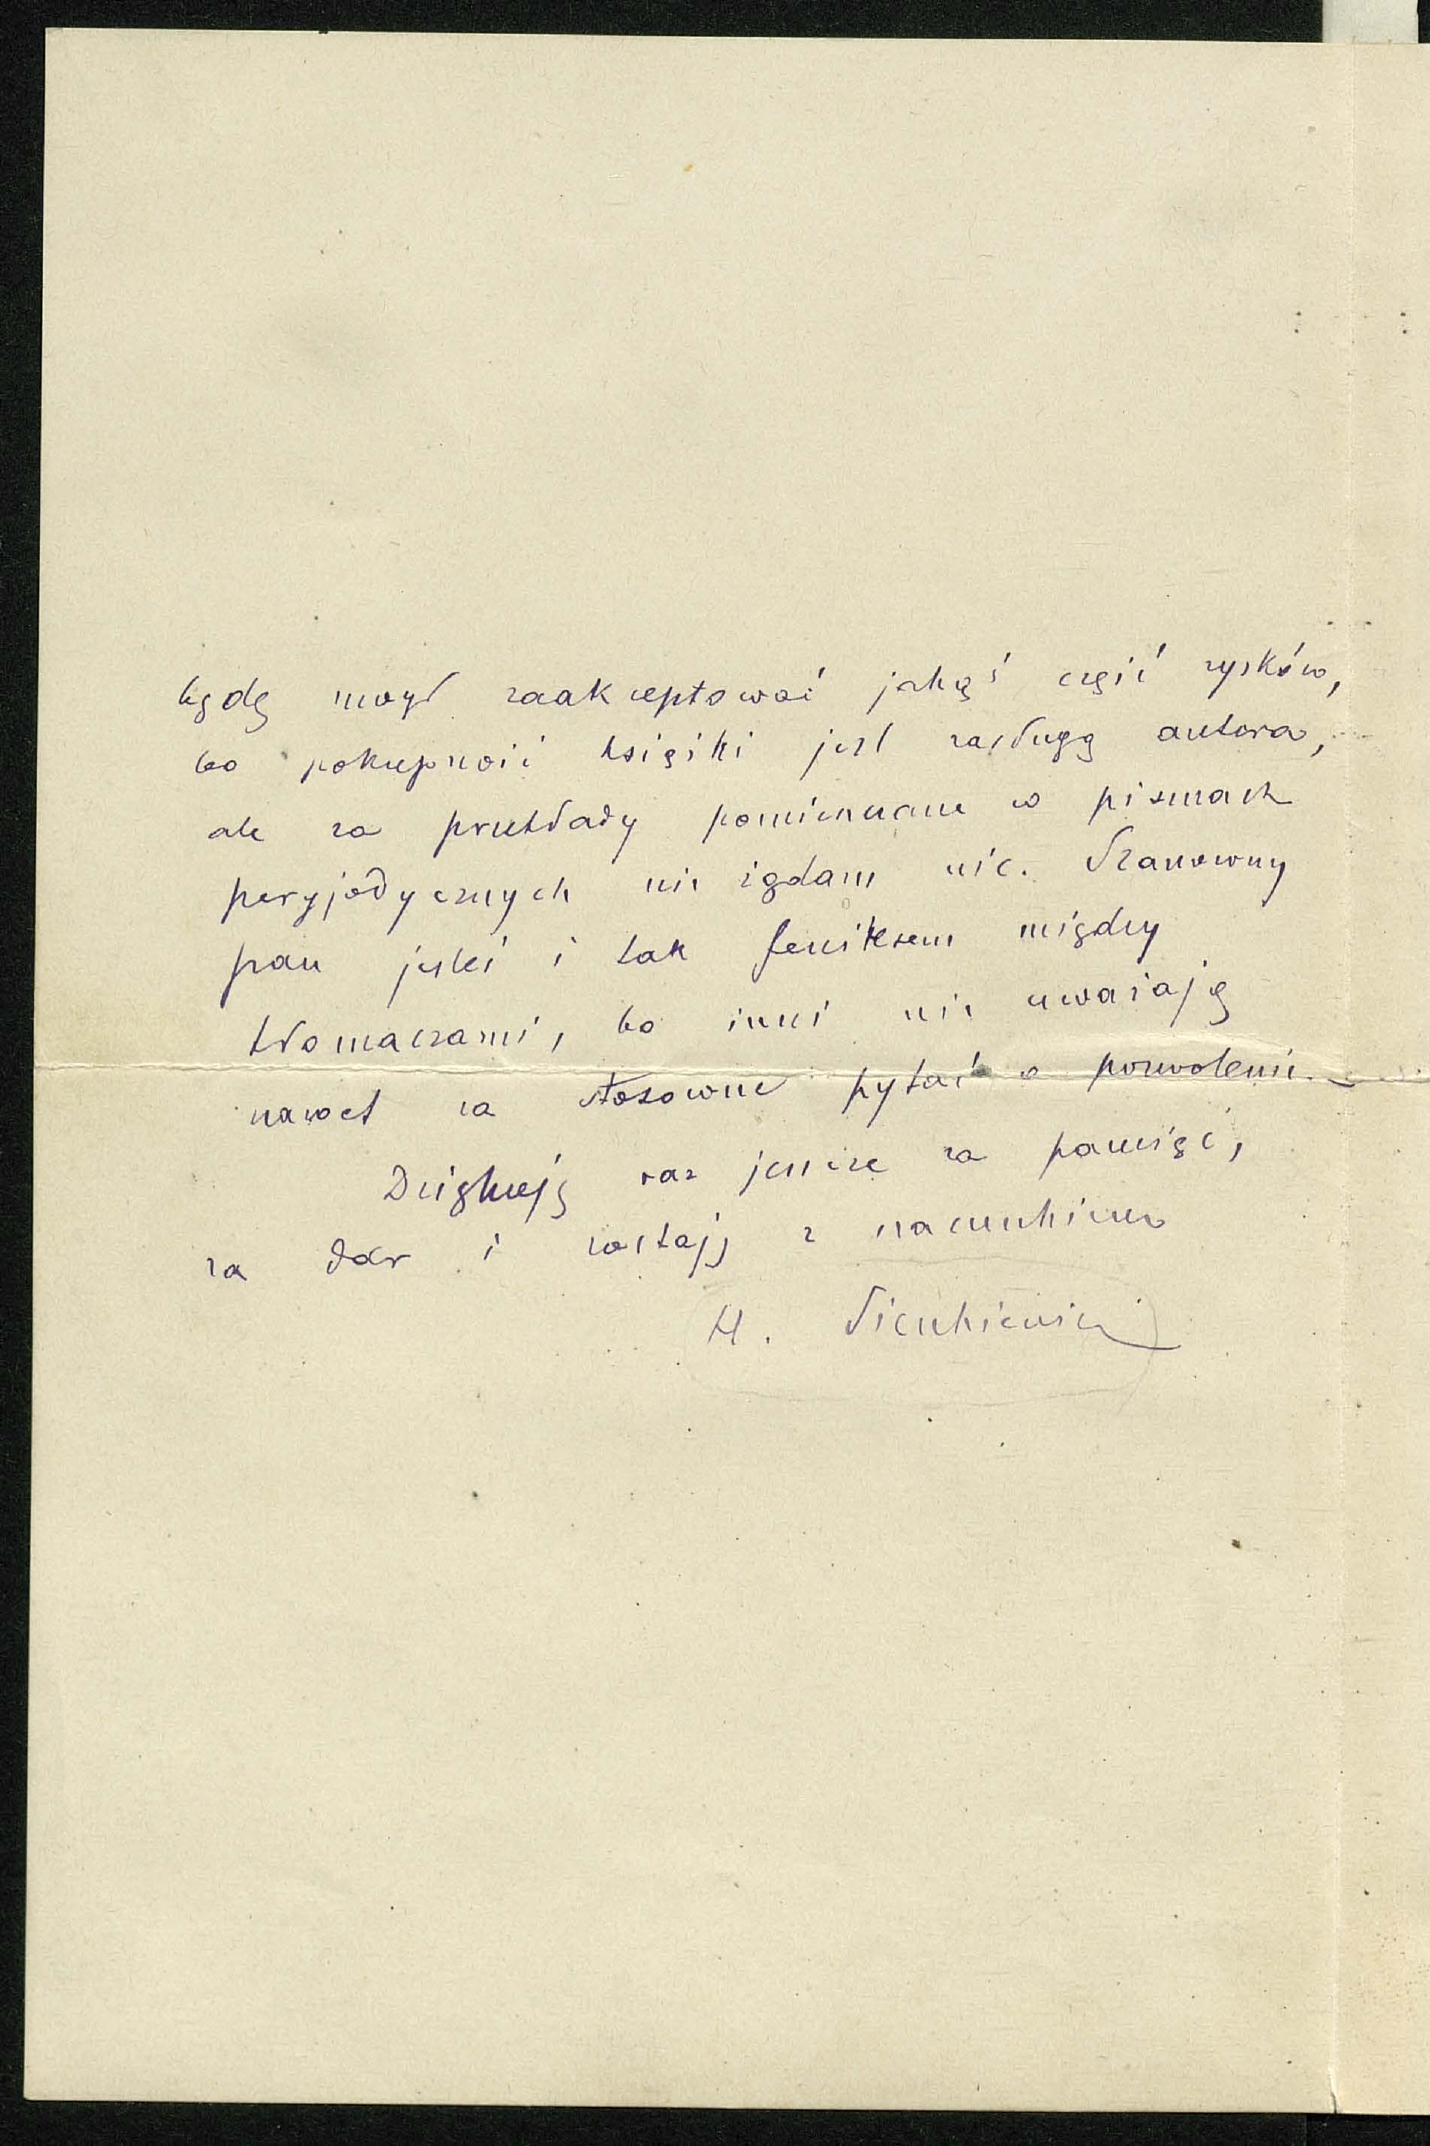 będę mógł zaakceptować jakąś część zysków,
bo pokupność książki jest zasługą autora,
ale za przekłady pomieszczane w pismach
peryjodycznych nie żądam nic. Szanowny
pan jesteś i tak feniksem między
tłomaczami, bo inni nie uważają
nawet za stosowne pytać o pozwolenie.
Dziękuję raz jeszcze za pamięć,
za dar i zostaję z szacunkiem
H. Sienkiewicz